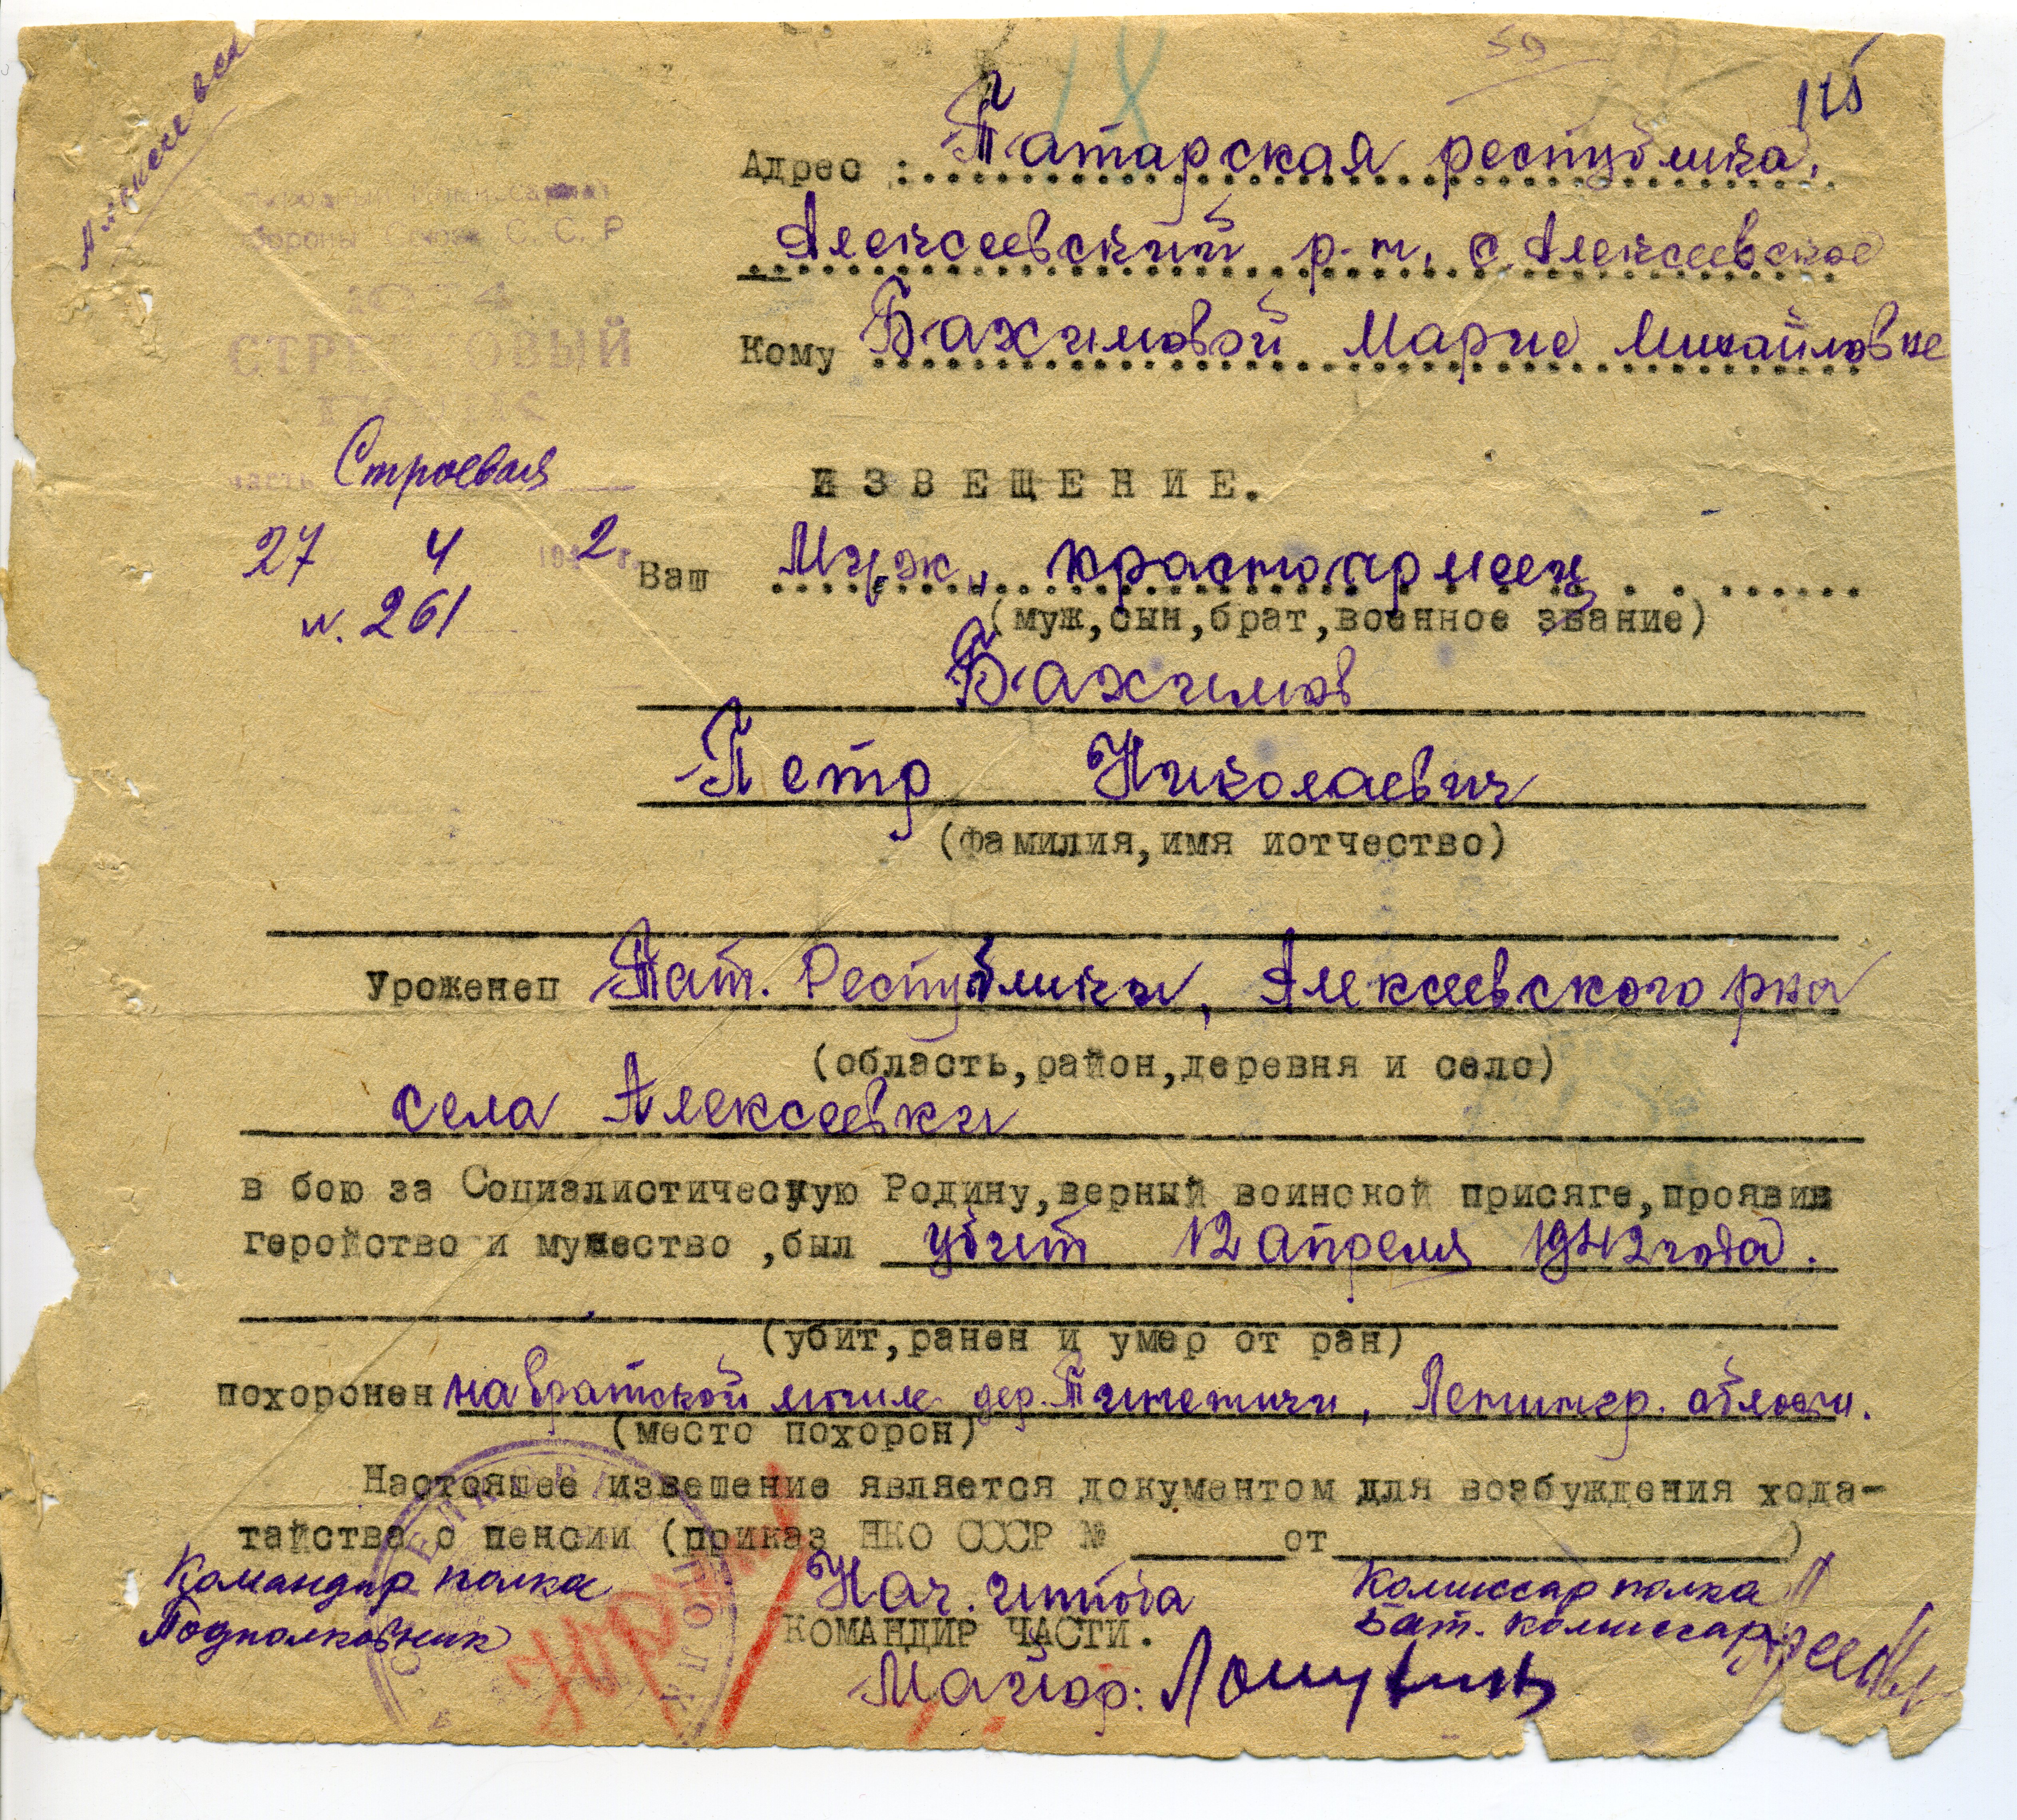 59
115
Адрес : Татарская республика,
Алексеевский р-н, с. Алексеевское
Кому Бахимовой Марие Михайловне
Народный Комиссариат
Обороны Союза С. С. Р
1074
СТРЕЛКОВЫЙ
ПОЛК
часть Строевая
27 4 1942 г.
н. 261
ИЗВЕЩЕНИЕ.
Ваш Муж, красноармеец
(муж,сын,брат,военное звание)
Бахимов
Петр Николаевич
(фамилия,имя иотчество)
Уроженец Тат. Республики, Алексеевского рна
(область,район,деревня и село)
села Алексеевки
в бою за Социалистическую Родину,верный воинской присяге,проявив
геройство и мужество ,был убит 12 апреля 1942 года.
(убит,ранен и умер от ран)
похоронен на братской могиле дер. Ленингр. области.
(место похорон)
Настоящее извещение является документом для возбуждения хода-
тайства о пенсии (приказ НКО СССР № от )
Командир полка Нач. штаба Комиссар полка
Подполковник КОМАНДИР ЧАСТИ. Бат. комиссар
Майор: